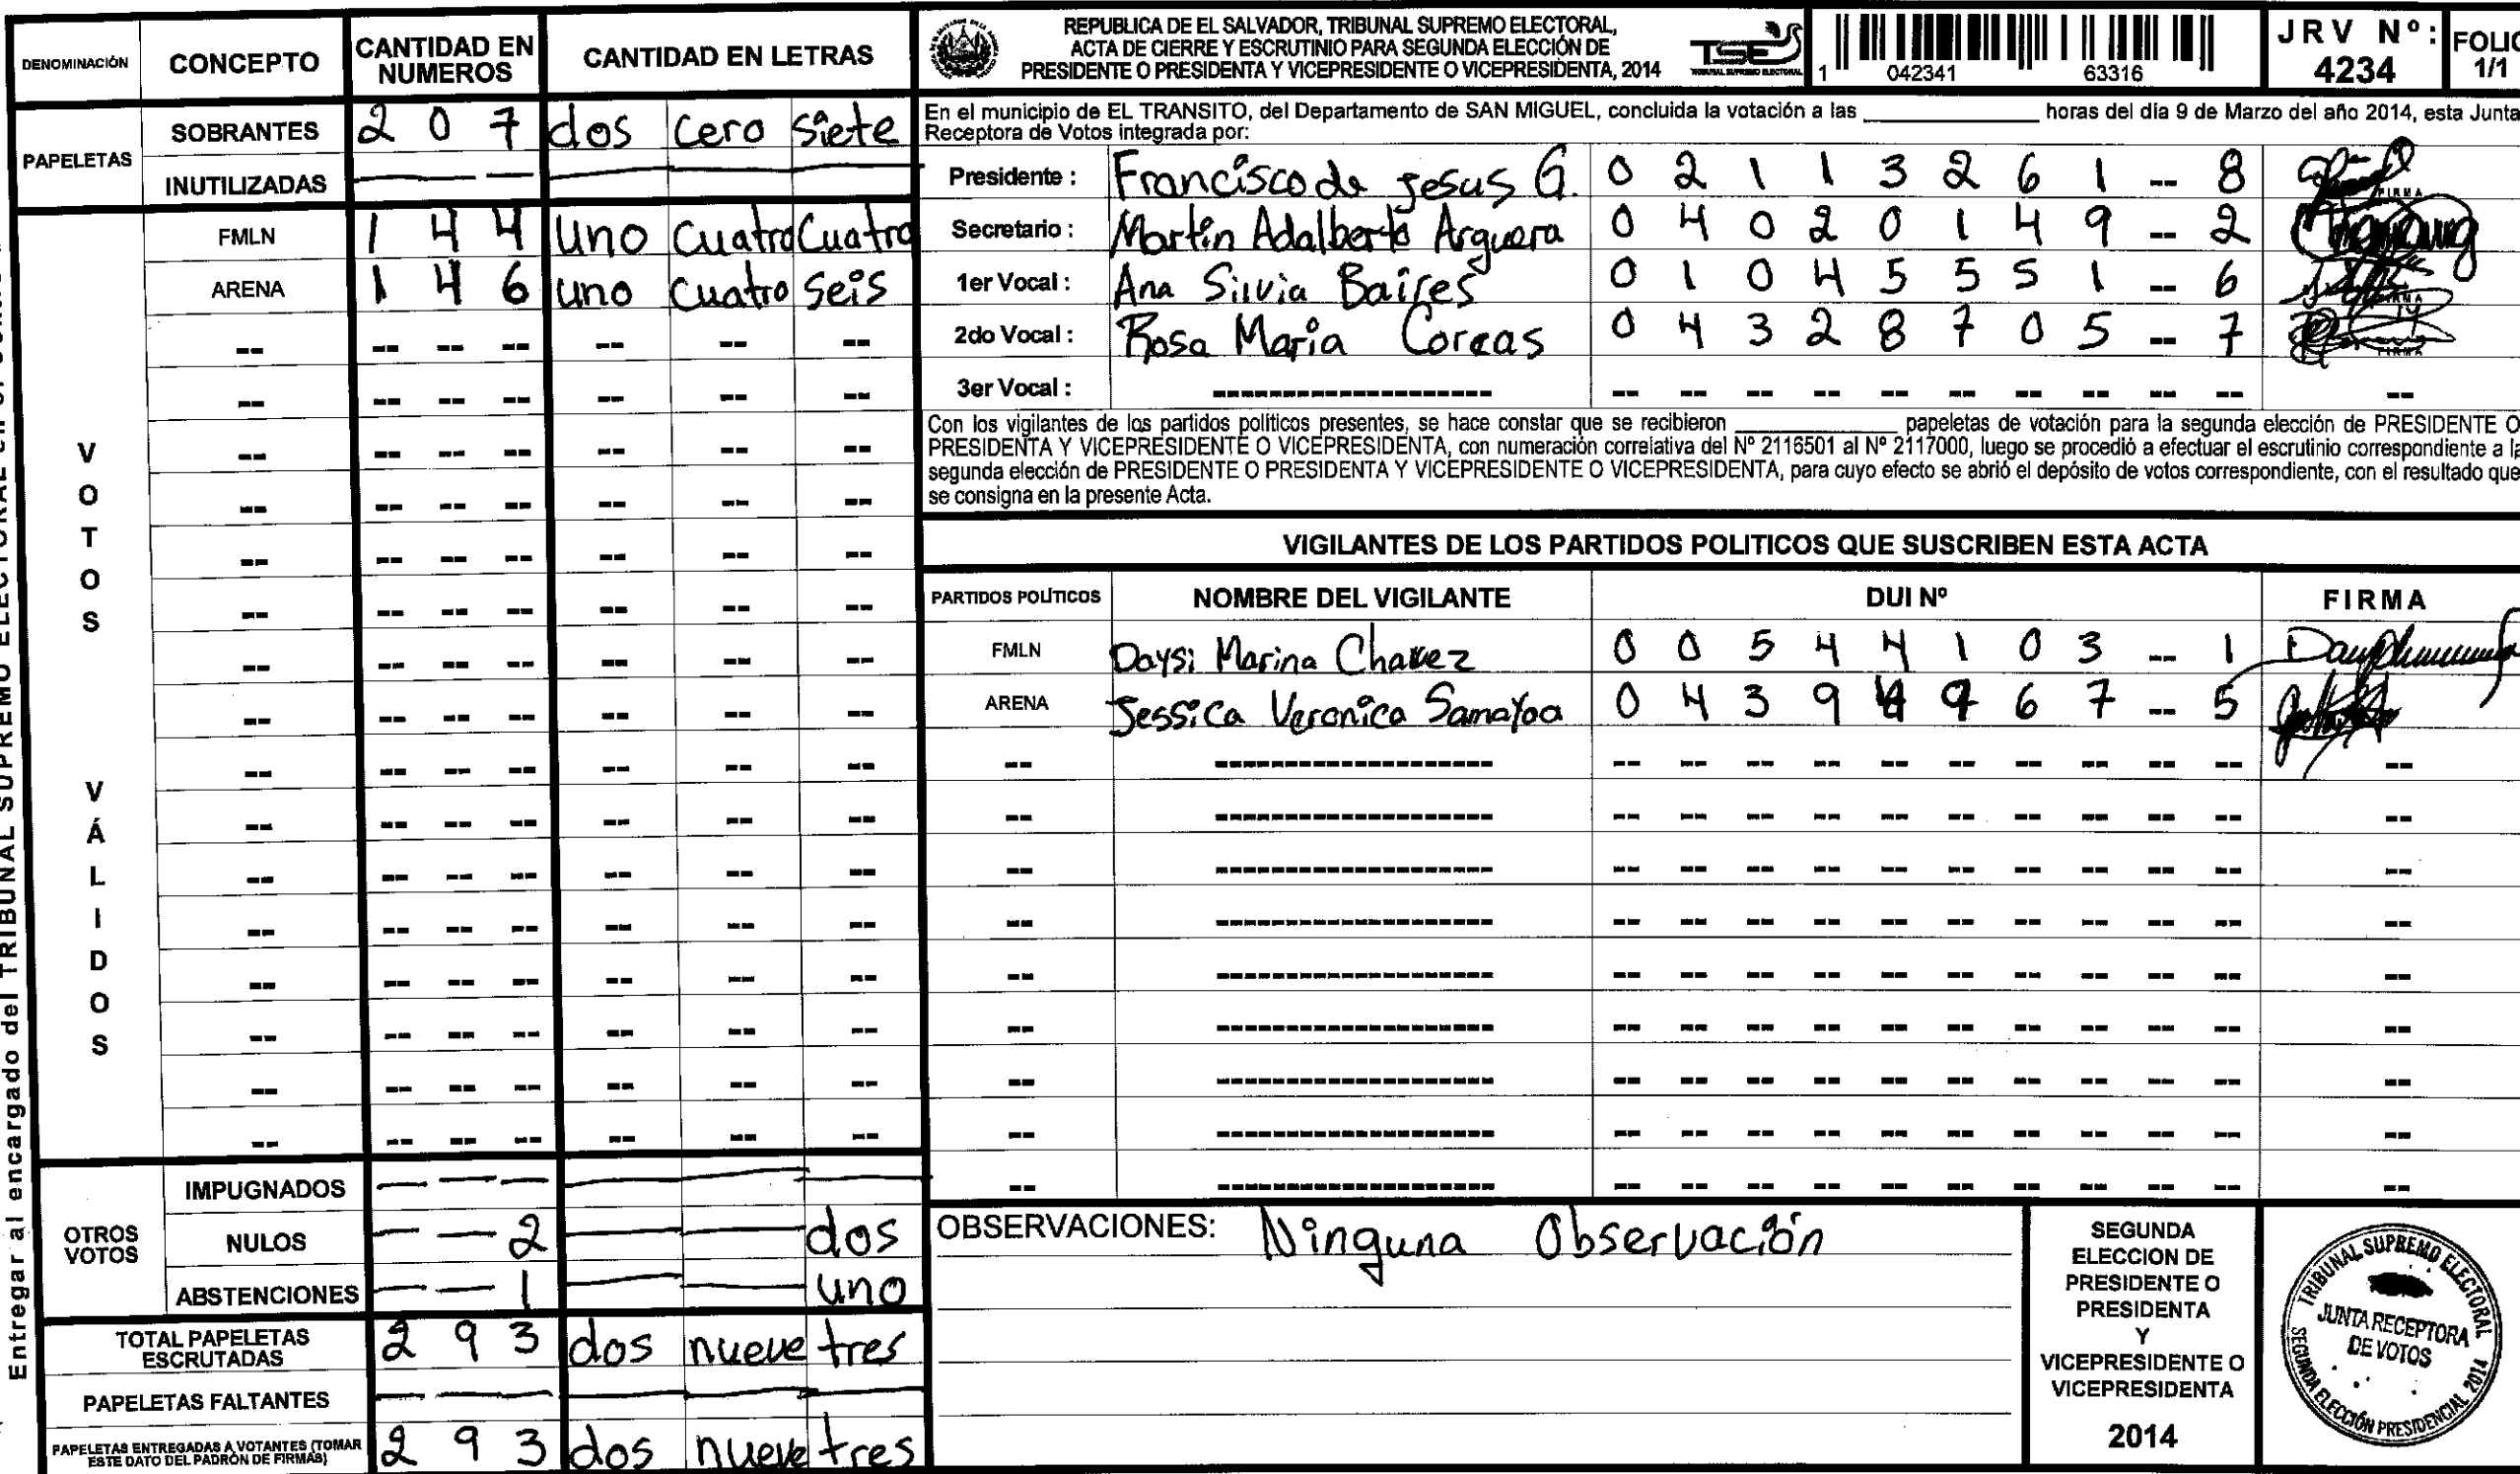 DENOMINACIÓN CONCEPTO CANTIDAD EN NUMEROS CANTIDAD EN LETRAS
PAPELETAS
SOBRANTES 2 0 7 dos cero siete
INUTILIZADAS — — —
VOTOS VÁLIDOS
FMLN 1 4 4 uno cuatro Cuatro
ARENA 1 4 6 uno cuatro seis
OTROS VOTOS
IMPUGNADOS — — —
NULOS — — 2 dos
ABSTENCIONES — — 1 uno
TOTAL PAPELETAS ESCRUTADAS 2 9 3 dos nueve tres
PAPELETAS FALTANTES — — —
PAPELETAS ENTREGADAS A VOTANTES (TOMAR ESTE DATO DEL PADRÓN DE FIRMAS) 2 9 3 dos nueve tres
Entregar al encargado del TRIBUNAL SUPREMO ELECTORAL en
REPUBLICA DE EL SALVADOR, TRIBUNAL SUPREMO ELECTORAL,
ACTA DE CIERRE Y ESCRUTINIO PARA SEGUNDA ELECCIÓN DE
PRESIDENTE O PRESIDENTA Y VICEPRESIDENTE O VICEPRESIDENTA, 2014
TSE
TRIBUNAL SUPREMO ELECTORAL
1 042341 63316
JRV Nº: 4234
FOLIO 1/1
En el municipio de EL TRANSITO, del Departamento de SAN MIGUEL, concluida la votación a las ____ horas del día 9 de Marzo del año 2014, esta Junta
Receptora de Votos integrada por:
Presidente : Francisco de jesus G. 0 2 1 1 3 2 6 1 -- 8
Secretario : Martin Adalberto Arguera 0 4 0 2 0 1 4 9 -- 2
1er Vocal : Ana Silvia Baires 0 1 0 4 5 5 5 1 -- 6
2do Vocal : Rosa Maria Coreas 0 4 3 2 8 7 0 5 -- 7
3er Vocal :
Con los vigilantes de los partidos políticos presentes, se hace constar que se recibieron ____ papeletas de votación para la segunda elección de PRESIDENTE O
PRESIDENTA Y VICEPRESIDENTE O VICEPRESIDENTA, con numeración correlativa del Nº 2116501 al Nº 2117000, luego se procedió a efectuar el escrutinio correspondiente a la
segunda elección de PRESIDENTE O PRESIDENTA Y VICEPRESIDENTE O VICEPRESIDENTA, para cuyo efecto se abrió el depósito de votos correspondiente, con el resultado que
se consigna en la presente Acta.
VIGILANTES DE LOS PARTIDOS POLITICOS QUE SUSCRIBEN ESTA ACTA
PARTIDOS POLÍTICOS NOMBRE DEL VIGILANTE DUI Nº FIRMA
FMLN Daysi Marina Chavez 0 0 5 4 4 1 0 3 -- 1
ARENA Jessica Veronica Samayoa 0 4 3 9 6 7 -- 5
OBSERVACIONES: Ninguna Observación
SEGUNDA
ELECCION DE
PRESIDENTE O
PRESIDENTA
Y
VICEPRESIDENTE O
VICEPRESIDENTA
2014
TRIBUNAL SUPREMO ELECTORAL
JUNTA RECEPTORA
DE VOTOS
SEGUNDA ELECCIÓN PRESIDENCIAL 2014